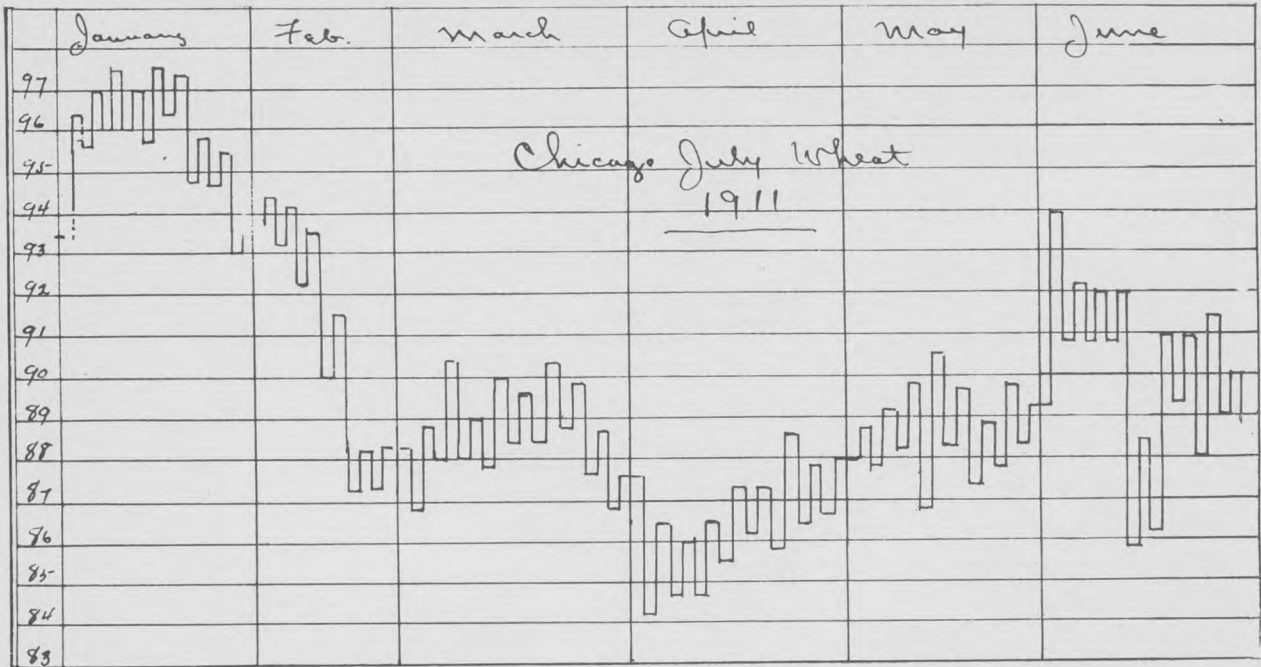 January Feb. March April May June
97
96
Chicago July Wheat
95
1911
94
93
92
91
90
89
88
87
86
85
84
83